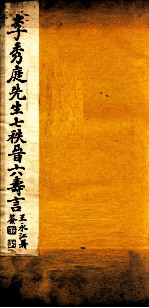 李秀庭先生七秩晉六壽言
王永江署
签